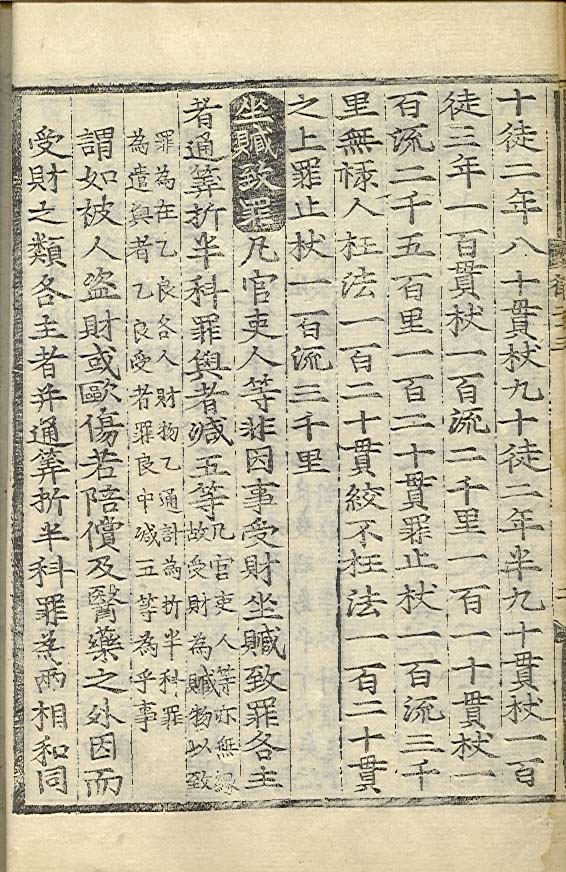 十徒二年八十貫杖九十徒二年半九十貫杖一百
徒三年一百貫杖一百流二千里一百一十貫杖一
百流二千五百里一百二十貫罪止杖一百流三千
里無祿人枉法一百二十貫絞不枉法一百二十貫
之上罪止杖一百流三千里
坐贓致罪凡官吏人等非因事受財坐贓致罪各主
者通筭折半科罪與者减五等
凡官吏人等亦無緣
故受財為贓物以致
罪為在乙良各人財物乙通計為折半科罪
為遣與者乙良受者罪良中减五等為乎事
謂如被人盜財或歐傷若陪償及醫藥之外因而
受財之類各主者并通筭折半科罪為兩相和同